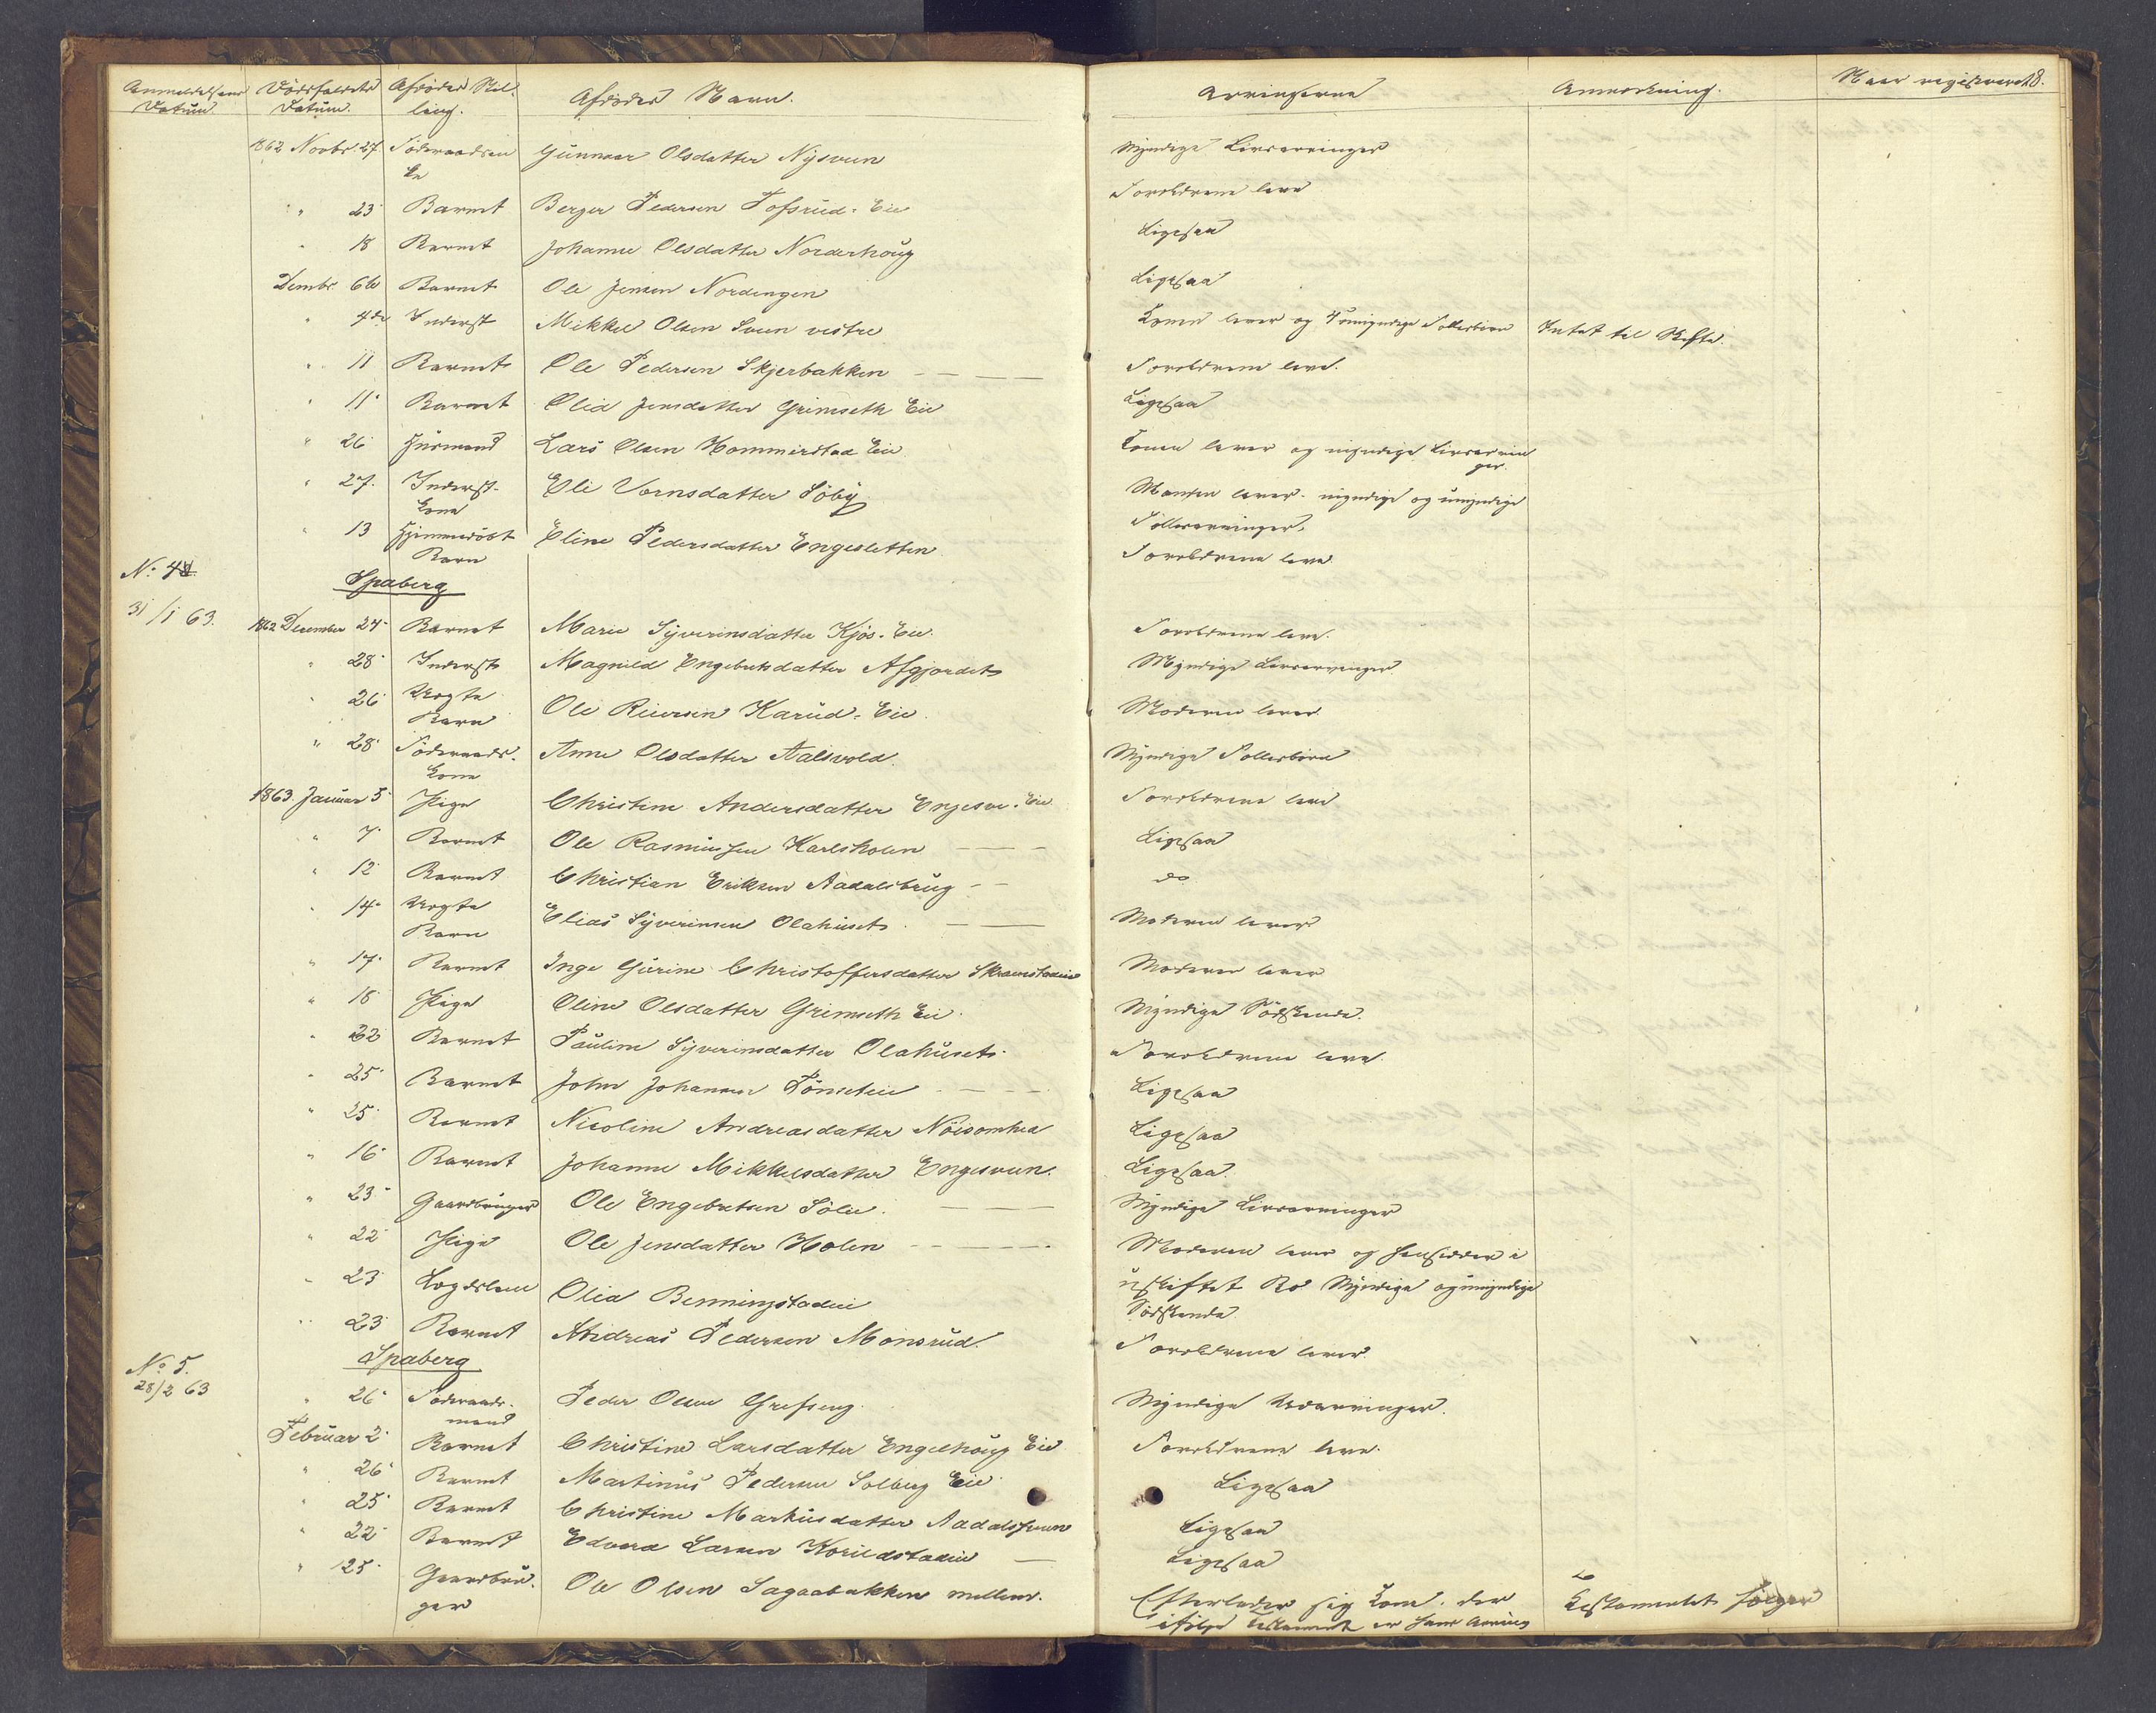 Anmeldelsens Datum. Dödsfaldets Datum. Afdödes Stilling. Afdödes Navn. Arvingerne Anmerkning. Naar registreret 8.
1862 Novbr. 27 Föderaadsen Ke Gunnor Olsdatter Nysveen Myndige Livsarvinger
" 23 Barnet Berger Pedersen Tofsrud-Eie Forældrene leve
" 18 Barnet Johanne Olsdatter Norderhoug Ligesaa
Dembr. 6te Barnet Ole Jensen Nordengen Ligesaa
" 4de Inderst Mikkel Olsen Sveen vestre Konen lever og 4 umyndige Fællesbörn Intet til Skifte.
" 11 Barnet Ole Pedersen Skjerbakken Forældrene leve.
" 11 Barnet Olia Jensdatter Grimseth Eie Ligesaa
" 26 Husmand Lars Olsen Hommerstad Eie Konen lever og myndige Livsarvinger.
" 27. Inderst-Kone Eli Vornsdatter Söby Manden lever - myndige og umyndige Fællesarvinger.
" 13 Hjemmedöbt Barn Eline Pedersdatter Engesletten Forældrene leve.
No. 4
Spaberg
31/1 63. 1862 December 24 Barnet Marie Syverinsdatter Kjös-Eie. Forældrene leve.
" 28 Inderst Magnild Engebretsdatter Afgjordet Myndige Livsarvinger
" 26 Uægte Barn Ole Reiersen Karud-Eie. Moderen lever.
" 28 Föderaads-Kone Anne Olsdatter Aalsvold. Myndige Fællesbörn
1863 Januar 5 Pige Christine Andersdatter Engesve-Eie Forældrene leve
" 7 Barnet Ole Rasmussen Karlsholen Ligesaa
" 12 Barnet Christian Eriksen Aadalsbrug do
" 14 Uægte Barn Elias Syverinsen Olahuset Moderen lever
" 17 Barnet Inge Gurine Christoffersdatter Skramstadeie Moderen lever
" 18 Pige Oline Olesdatter Grimseth Eie Myndige Södskende.
" 22 Barnet Pauline Syverinsdatter Olahuset Forældrene leve.
" 25 Barnet John Johannesen Tönseteie Ligesaa
" 25 Barnet Nicoline Andreasdatter Nöisomhed Ligesaa
" 16 Barnet Johanne Mikkelsdatter Engesveen. Ligesaa
" 23 Gaardbruger Ole Engebretsen Sölie. Myndige Livsarvinger
" 22 Pige Ole Jensdatter Holen Moderen lever og hensidder i
" 23 Lægdslem Olia Benningstadeie uskiftet Bo Myndige og umyndige Södskende
" 23 Barnet Andreas Pedersen Monsrud. Forældrene lever.
No 5.
Spaberg
28/2 63 " 26 Föderaads-mand Peder Olsen Grefseng Myndige Udarvinger.
Februar 2 Barnet Christine Larsdatter Engelhoug Eie Forældrene leve.
" 26 Barnet Martinus Pedersen Solberg Eie Ligesaa
" 25 Barnet Christine Markusdatter Aadalssveen Ligesaa
" 22 Barnet Edvard Larsen Korildstadeie Ligesaa
" 25 Gaardbruger Ole Olsen Sagaabakken mellem. Efterlader sig Kone. der ifölge Testament er hans Arving Testamentet fölger